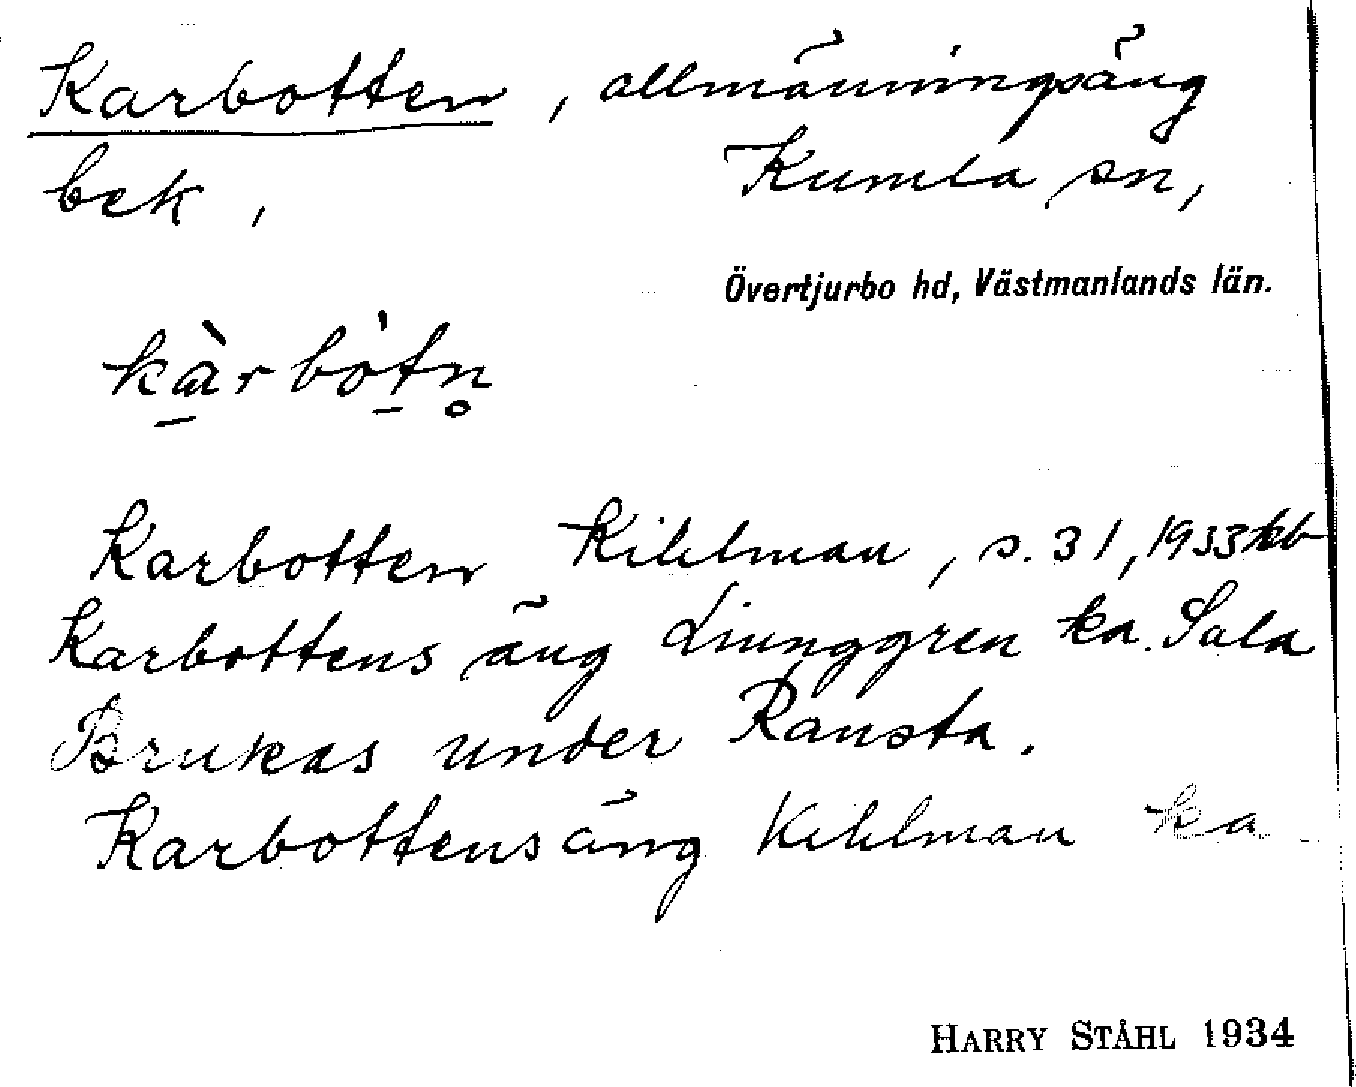 Karbotten, allmänningsäng
bek, Kumla sn,
Övertjurbo hd, Västmanlands län.
kàrbòtn̥
Karbotten Kihlman, s. 31, 1933 kb
Karbottens äng Liunggren ka. Sala
Brukas under Ransta.
Karbottensäng Kihlman ka
HARRY STÅHL 1934